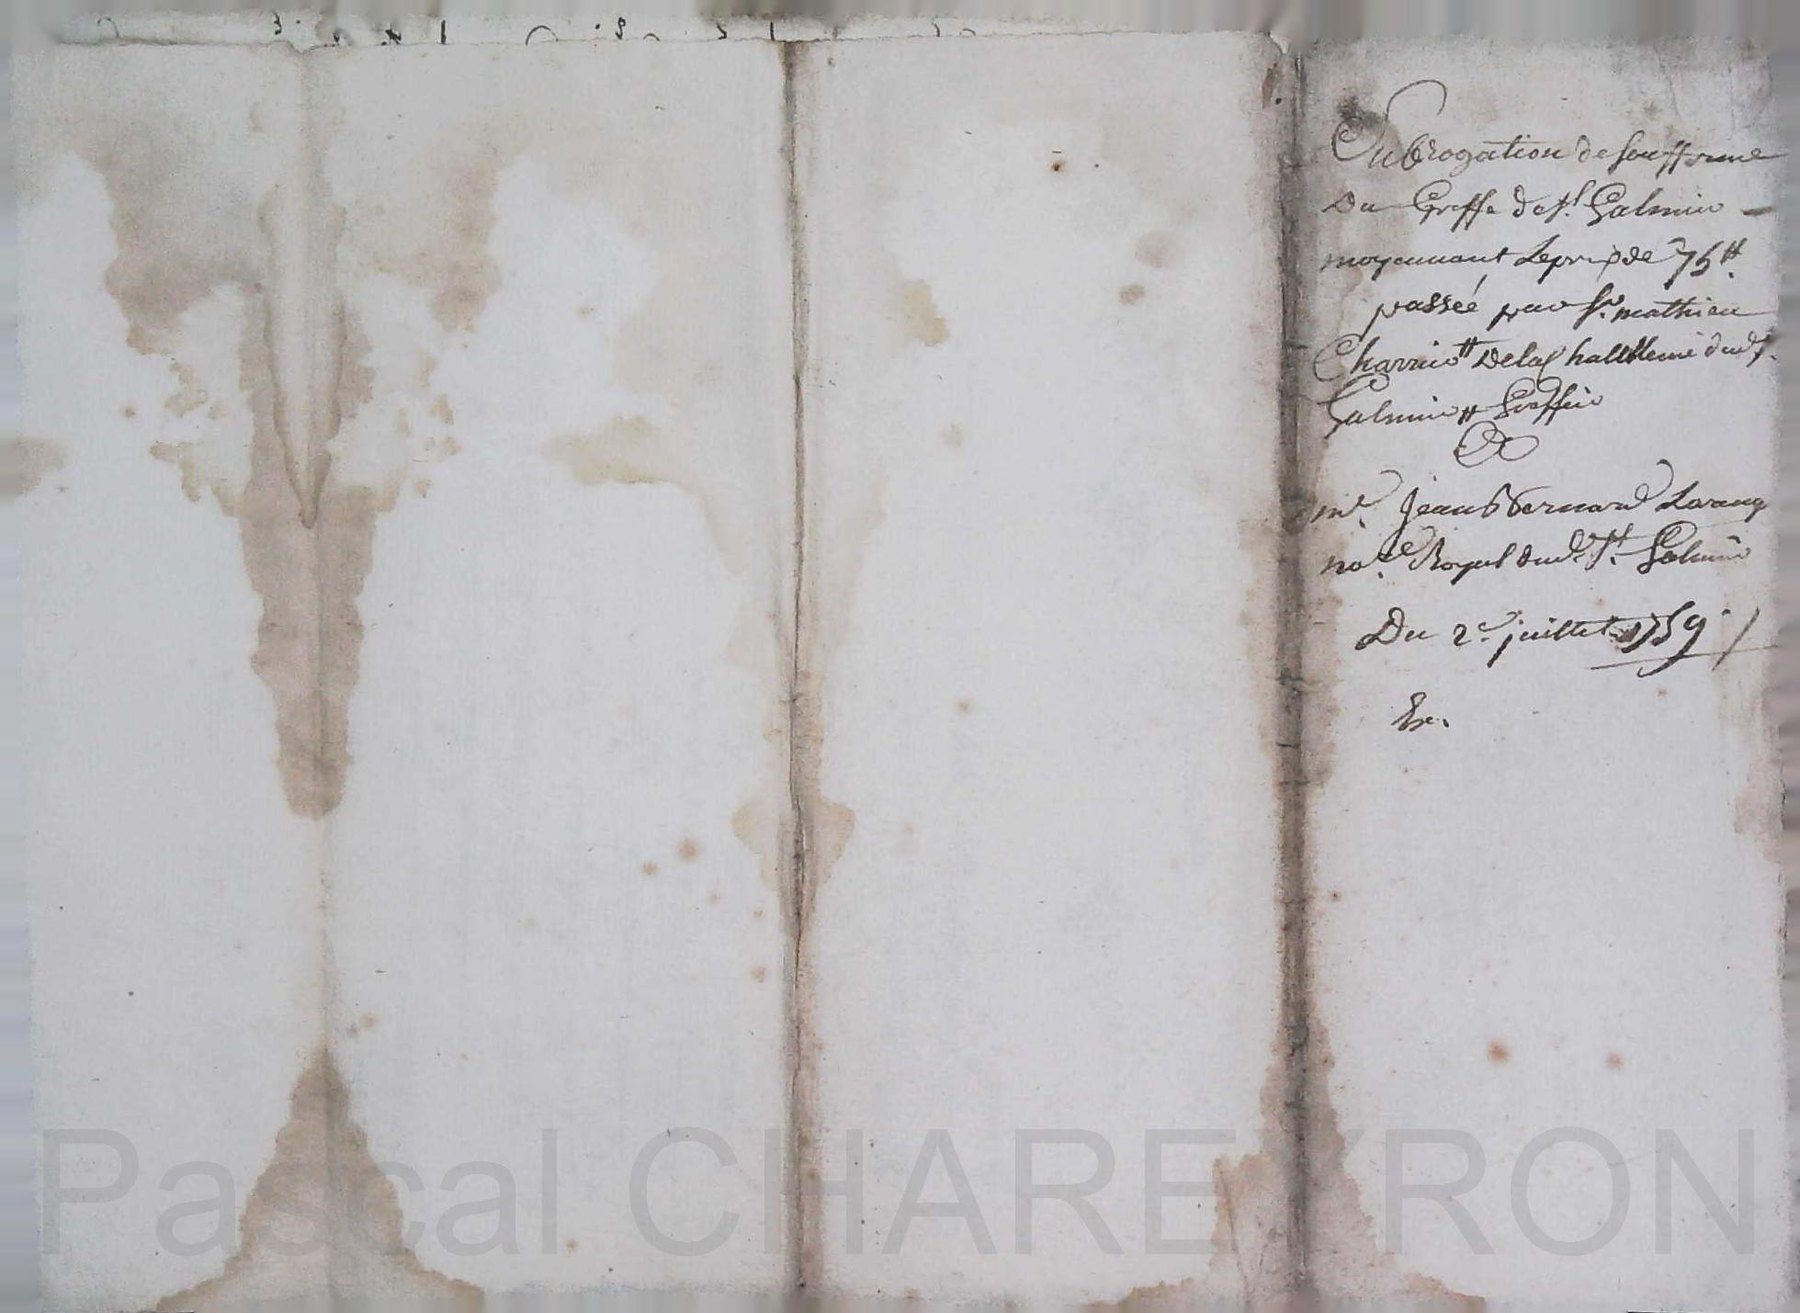 Subrogation de soufferme
Du Greffe de st. Galmier
moyennant Le prix de 75 ₶.
passée par Sr. mathieu
Charrier De la dud. st.
Galmier Greffier
&
Me. Jean Bernard Larang
nore. Royal dud. st. Galmier
Du 2e. juillet 1759 /
Ex.
Pascal CHAREYRON